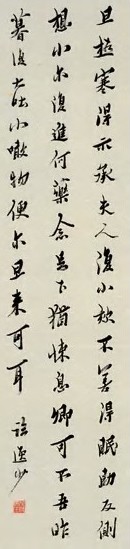 旦極寒得示承夫人復小欬不善得眠助反側
想小尒復進何藥念足下猶悚息卿可不吾昨
暮復大吐小噉物便尒旦來可耳